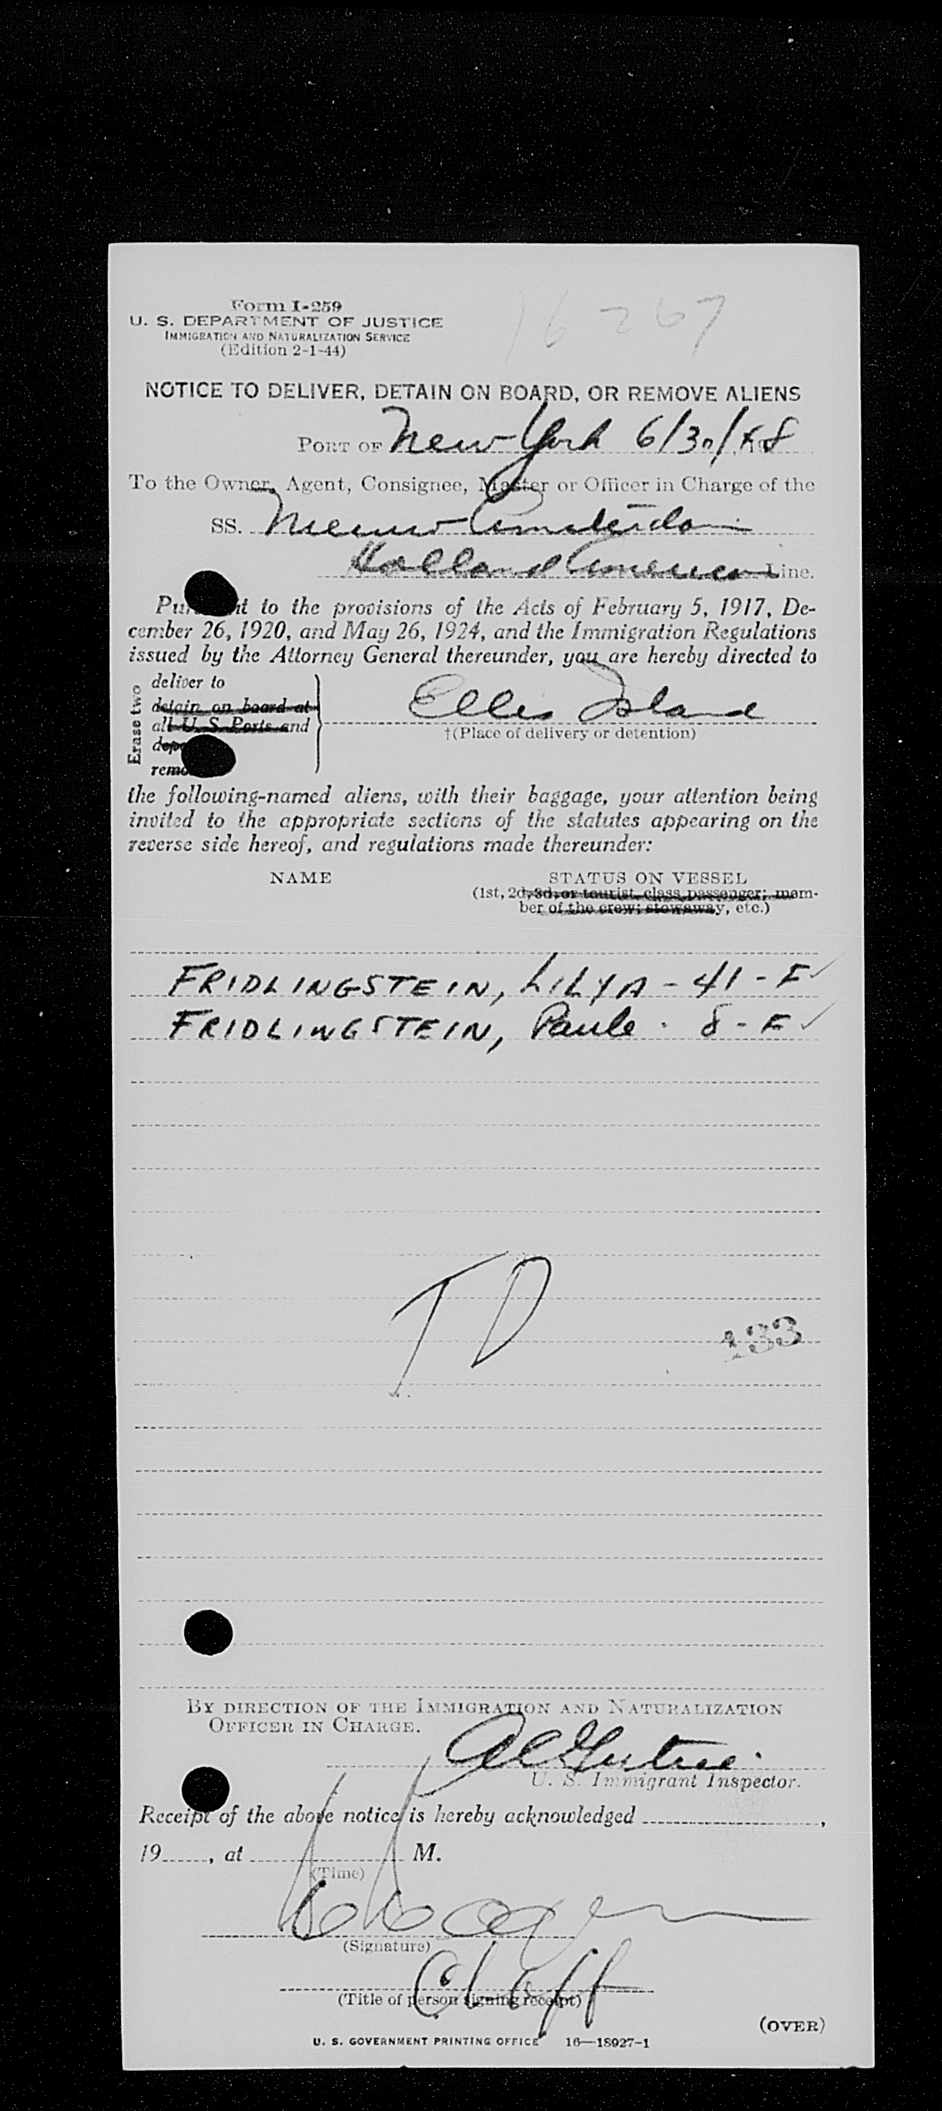 Form I-259
U. S. DEPARTMENT OF JUSTICE
IMMIGRATION AND NATURALIZATION SERVICE
(Edition 2-1-44)
16267
NOTICE TO DELIVER, DETAIN ON BOARD, OR REMOVE ALIENS
PORT OF New York 6/30/48
To the Owner, Agent, Consignee, Master or Officer in Charge of the
SS. Nieuw Amsterdam
Holland America Line.
Pursuant to the provisions of the Acts of February 5, 1917, De-
cember 26, 1920, and May 26, 1924, and the Immigration Regulations
issued by the Attorney General thereunder, you are hereby directed to
Erase two
deliver to
detain on board at
all U. S. Ports and
Ellis Island
†(Place of delivery or detention)
the following-named aliens, with their baggage, your attention being
invited to the appropriate sections of the statutes appearing on the
reverse side hereof, and regulations made thereunder:
NAME STATUS ON VESSEL
(1st, 2d, 3d, or tourist class passenger; mem-
ber of the crew; stowaway, etc.)
FRIDLINGSTEIN, LILYA - 41 - F ✓
FRIDLINGSTEIN, Paule - 8 - F ✓
TD
133
BY DIRECTION OF THE IMMIGRATION AND NATURALIZATION
OFFICER IN CHARGE.
U. S. Immigrant Inspector.
Receipt of the above notice is hereby acknowledged ,
19 , at M.
(Time)
(Signature)
(Title of person signing receipt)
(OVER)
U. S. GOVERNMENT PRINTING OFFICE 16—18927-1